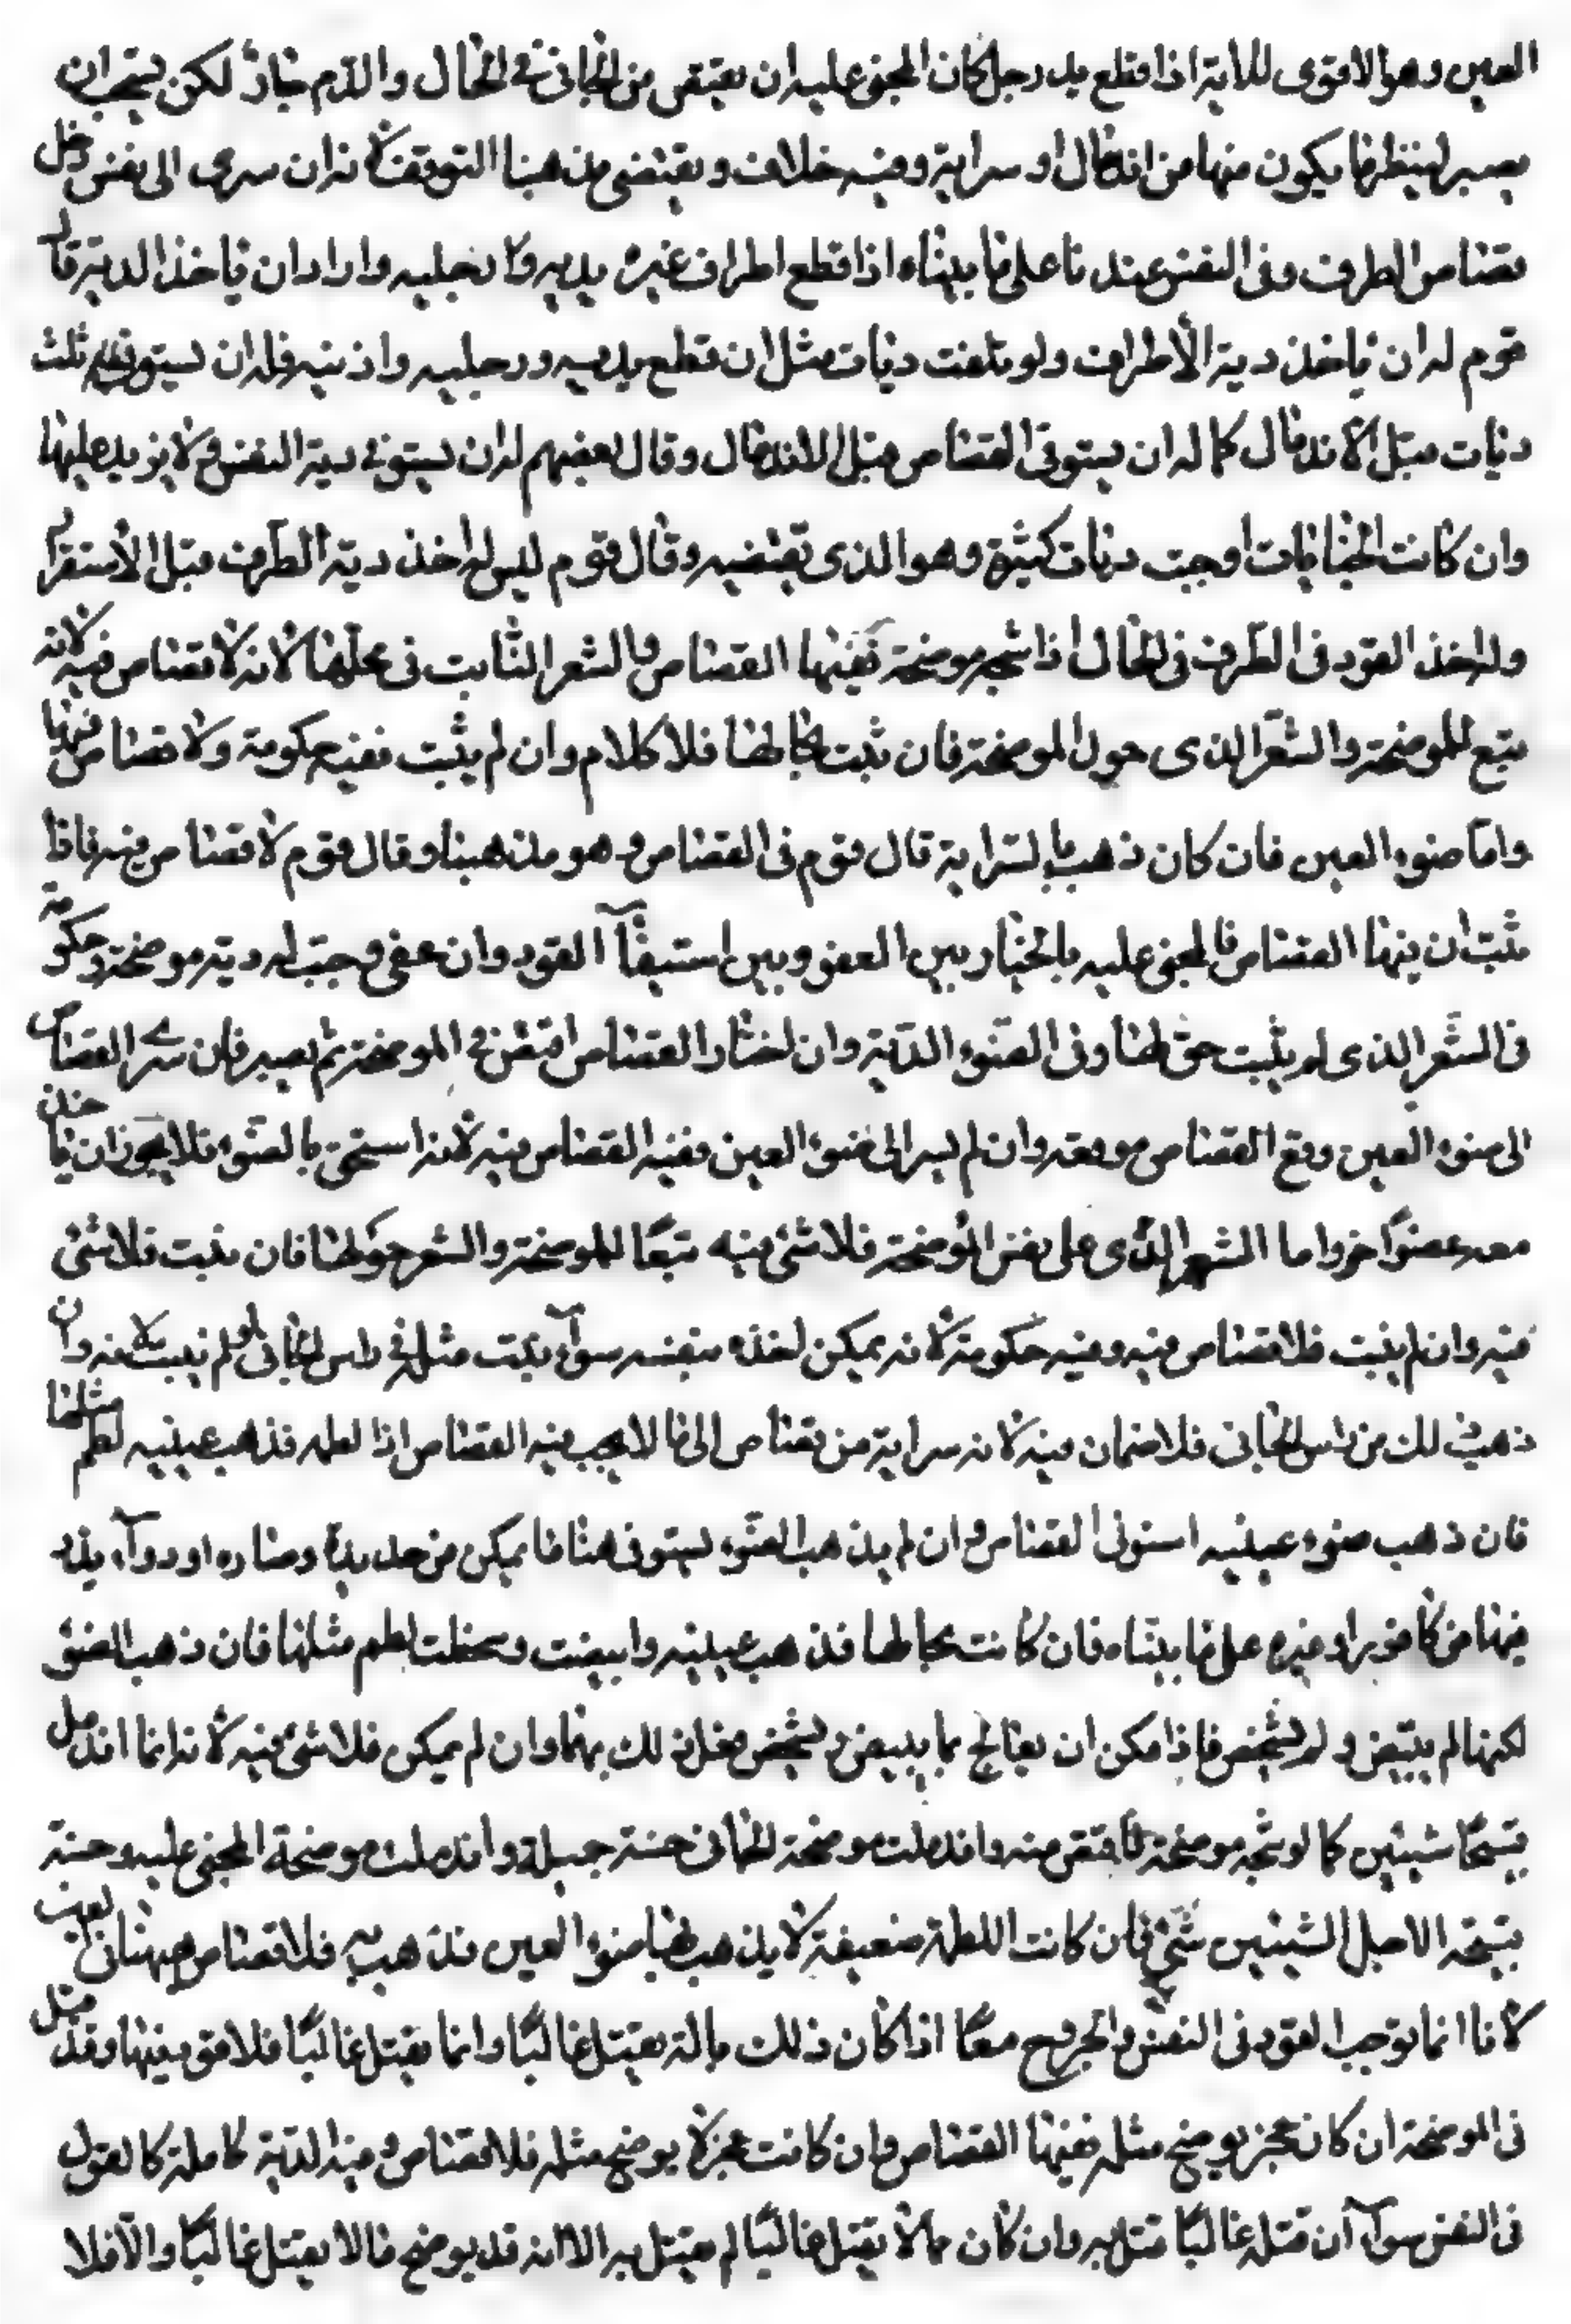 العين وهو الاقوى للاية اذا قطع يد رجل كان المجنى عليه ان يقتص من الجانى فى الحال والدم جار لكن يستحب ان
يصبر لينظر ما يكون منها من اندمال او سراية وفيه خلاف ويقتضى مذهبنا التوقف لانه ان سرى الى نفس دخل
قصاص الطرف فى النفس عندنا على ما بيناه اذا قطع اطراف غيره يديه ورجليه واراد ان ياخذ الدية قال
قوم له ان ياخذ دية الاطراف ولو بلغت ديات مثل ان قطع يديه ورجليه واذنيه فله ان يستوفى ثلث
ديات قبل الاندمال كما له ان يستوفى القصاص قبل الاندمال وقال بعضهم له ان يستوفى دية النفس ولا يزيد عليها
وان كانت الجنايات اوجبت ديات كثيرة وهو الذى يقتضيه وقال قوم ليس له اخذ دية الطرف قبل الاستقرار
وله اخذ القود فى الطرف فى الحال اذا شجه موضحة ففيها القصاص والشعر الثابت فى محلها لانه لا قصاص فيه لانه
يتبع للموضحة والشعر الذى حول الموضحة فان ثبت بحالها فلا كلام وان لم يثبت ففيه حكومة ولا قصاص فيها
واما ضوء العين فان كان ذهب بالسراية قال قوم فى القصاص وهو مذهبنا وقال قوم لا قصاص فيه فاذا
ثبت ان فيها القصاص فالمجنى عليه بالخيار بين العفو وبين استيفاء القود وان عفى وجبت له دية موضحة وحكومة
فى الشعر الذى لم يثبت حولها وفى الضوء الدية وان اختار القصاص اقتص فى الموضحة ثم يصبر فان سرى القصاص
الى ضوء العين وقع القصاص موقعه وان لم يسر الى ضوء العين ففيه القصاص فيه لانه استحق بالضوء فلا يجوز ان ياخذ
معه عضوا اخر واما الشعر الذى على نفس الموضحة فلا شئ فيه تبعا للموضحة والشعر حولها فان نبت فلا شئ
فيه وان لم ينبت فلا قصاص فيه وفيه حكومة لانه يمكن اخذه بنفسه سواء نبت مثله فى راس الجانى او لم ينبت لانه وان
ذهب ذلك من راس الجانى فلا ضمان فيه لانه سراية من قصاص الى ما لا يجب فيه القصاص اذا لطمه فذهب عينيه لطم مثلها
فان ذهب ضوء عينيه استوفى القصاص وان لم يذهب الضوء يستوفى هنا ما يمكن من حديدة وصاره او دواء يذر
فيها من كافور او غيره على ما بيناه فان كانت بحالها فذهب عينيه وابيضت وشخصت لطم مثلها فان ذهب الضوء
لكنها لم يبيض ولم يشخص فاذا امكن ان يعالج بما يبيض ويشخص فعل ذلك بهما وان لم يمكن فلا شئ فيه لانه انما اندمل
قبيحا شينين كما لو شجه موضحة فاقتص منه واندملت موضحة الجانى حسنة جميلة واندملت موضحة المجنى عليه وحشة
قبيحة لا لاجل الشينين شئ فان كانت اللطمة ضعيفة لا يذهب بها ضوء العين فذهب به فلا قصاص هيهنا
لانا انما نوجب القود فى النفس والجروح معا اذا كان ذلك بالة يقتل غالبا وانما يقتل غالبا فلا قود فيها وقد قيل
فى الموضحة ان كان بحجر يوضح مثله ففيها القصاص وان كانت بحجر لا يوضح مثله فلا قصاص وفيه الدية كاملة كالقول
فى النفس سواء ان قتله غالبا قتل به وان كان مما لا يقتل غالبا لم يقتل به الا انه قد يوضح ما لا يقتل غالبا والا فلا